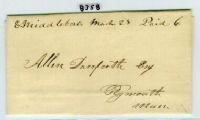 9358
E Middleboro Mch 28 Paid 6
Allen Danforth Esq
Plymouth
Mass